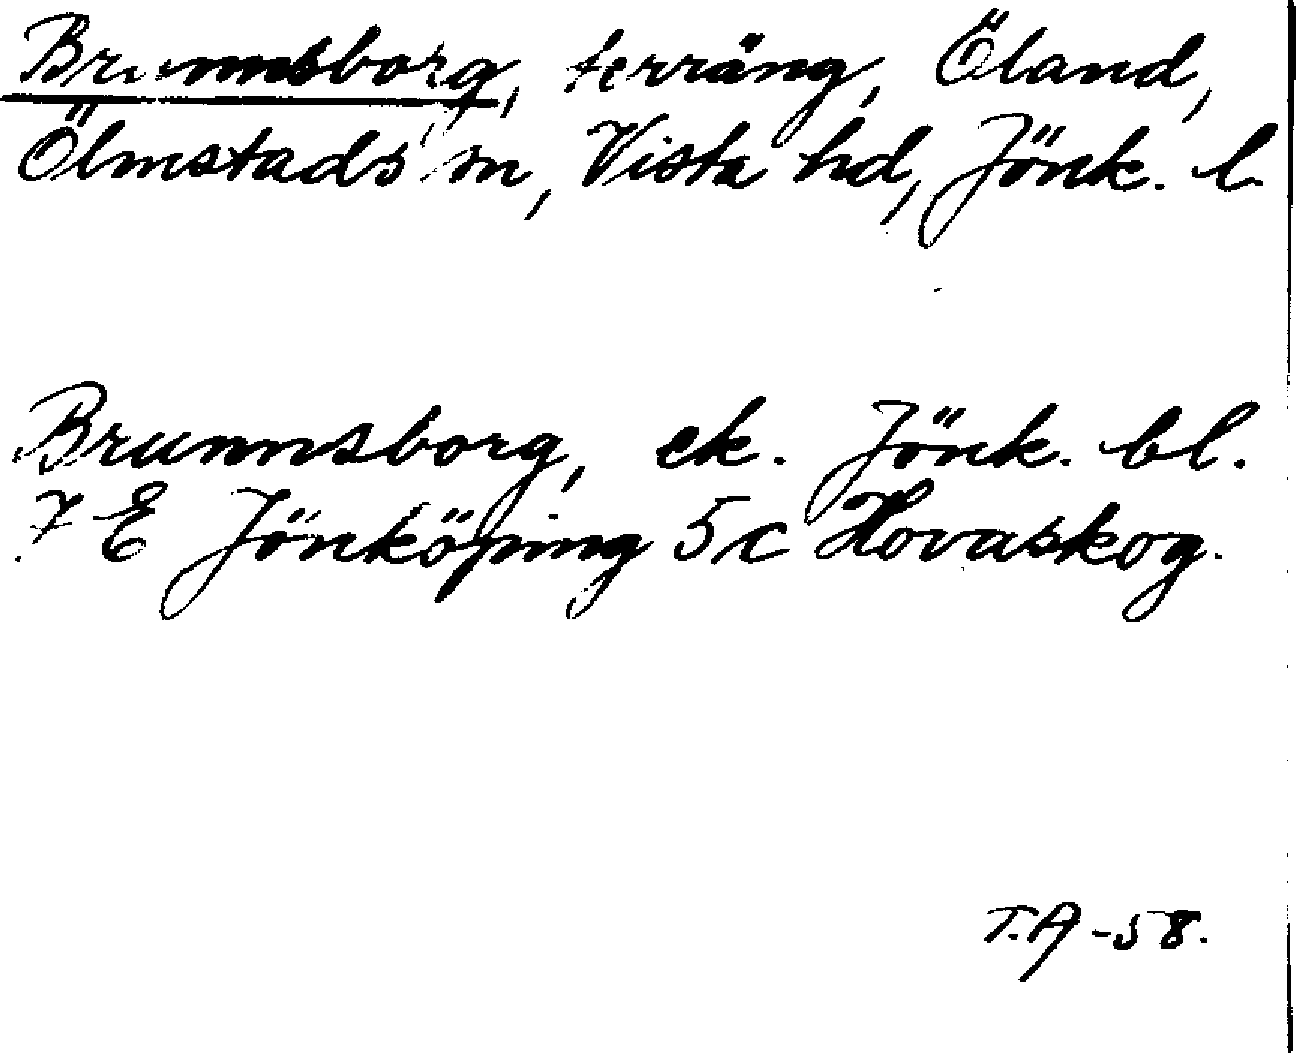 Brunnsborg, terräng, Öland,
Ölmstads sn, Vista hd, Jönk. l.
Brunnsborg, ek. Jönk. bl.
7 E Jönköping 5c Hovaskog.
T.A -58.